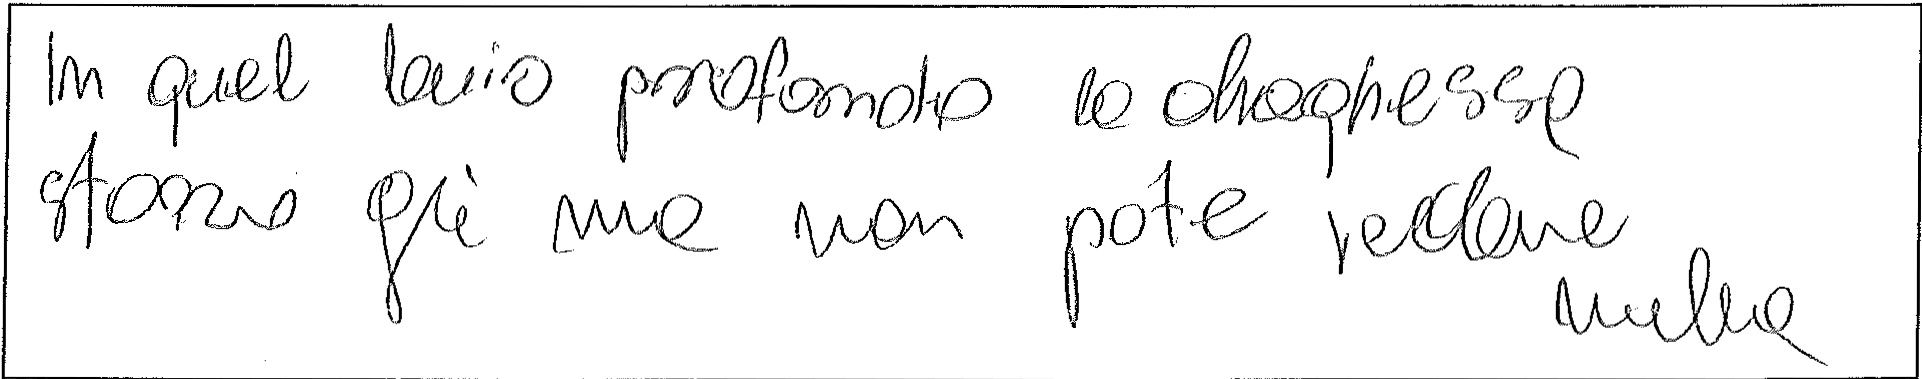 In quel buio profondo la draghessa
stanno giù ma non poté vederne
nulla